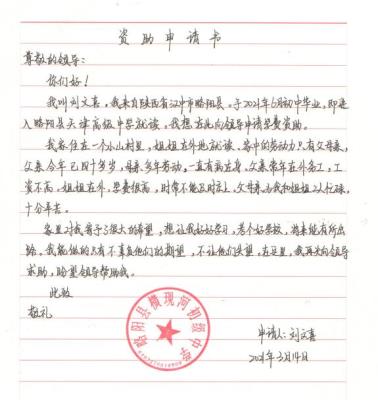 资助申请书
尊敬的领导：
你们好！
我叫刘文喜，我来自陕西省汉中市略阳县。于2021年6月初中毕业，即进
入略阳县天津高级中学就读，我想在此向领导申请学费资助。
我居住在一个小山村里，姐姐在外地就读，家中的劳动力只有父母亲，
父亲今年已四十多岁，母亲多年劳动，一直有病在身，父亲常年在外务工，工
资不高，姐姐在外，学费很高，时常不能及时交上，父母亲为我和姐姐2人忙碌，
十分辛苦。
家里对我寄予了很大的希望，想让我好好学习，考个好学校，将来能有所出
路。我能做的只有不辜负他们的期望，不让他们失望。在这里，我再次向领导
求助，盼望领导帮助我。
此致
敬礼
略阳县横现河初级中学
申请人：刘文喜
2021年3月14日